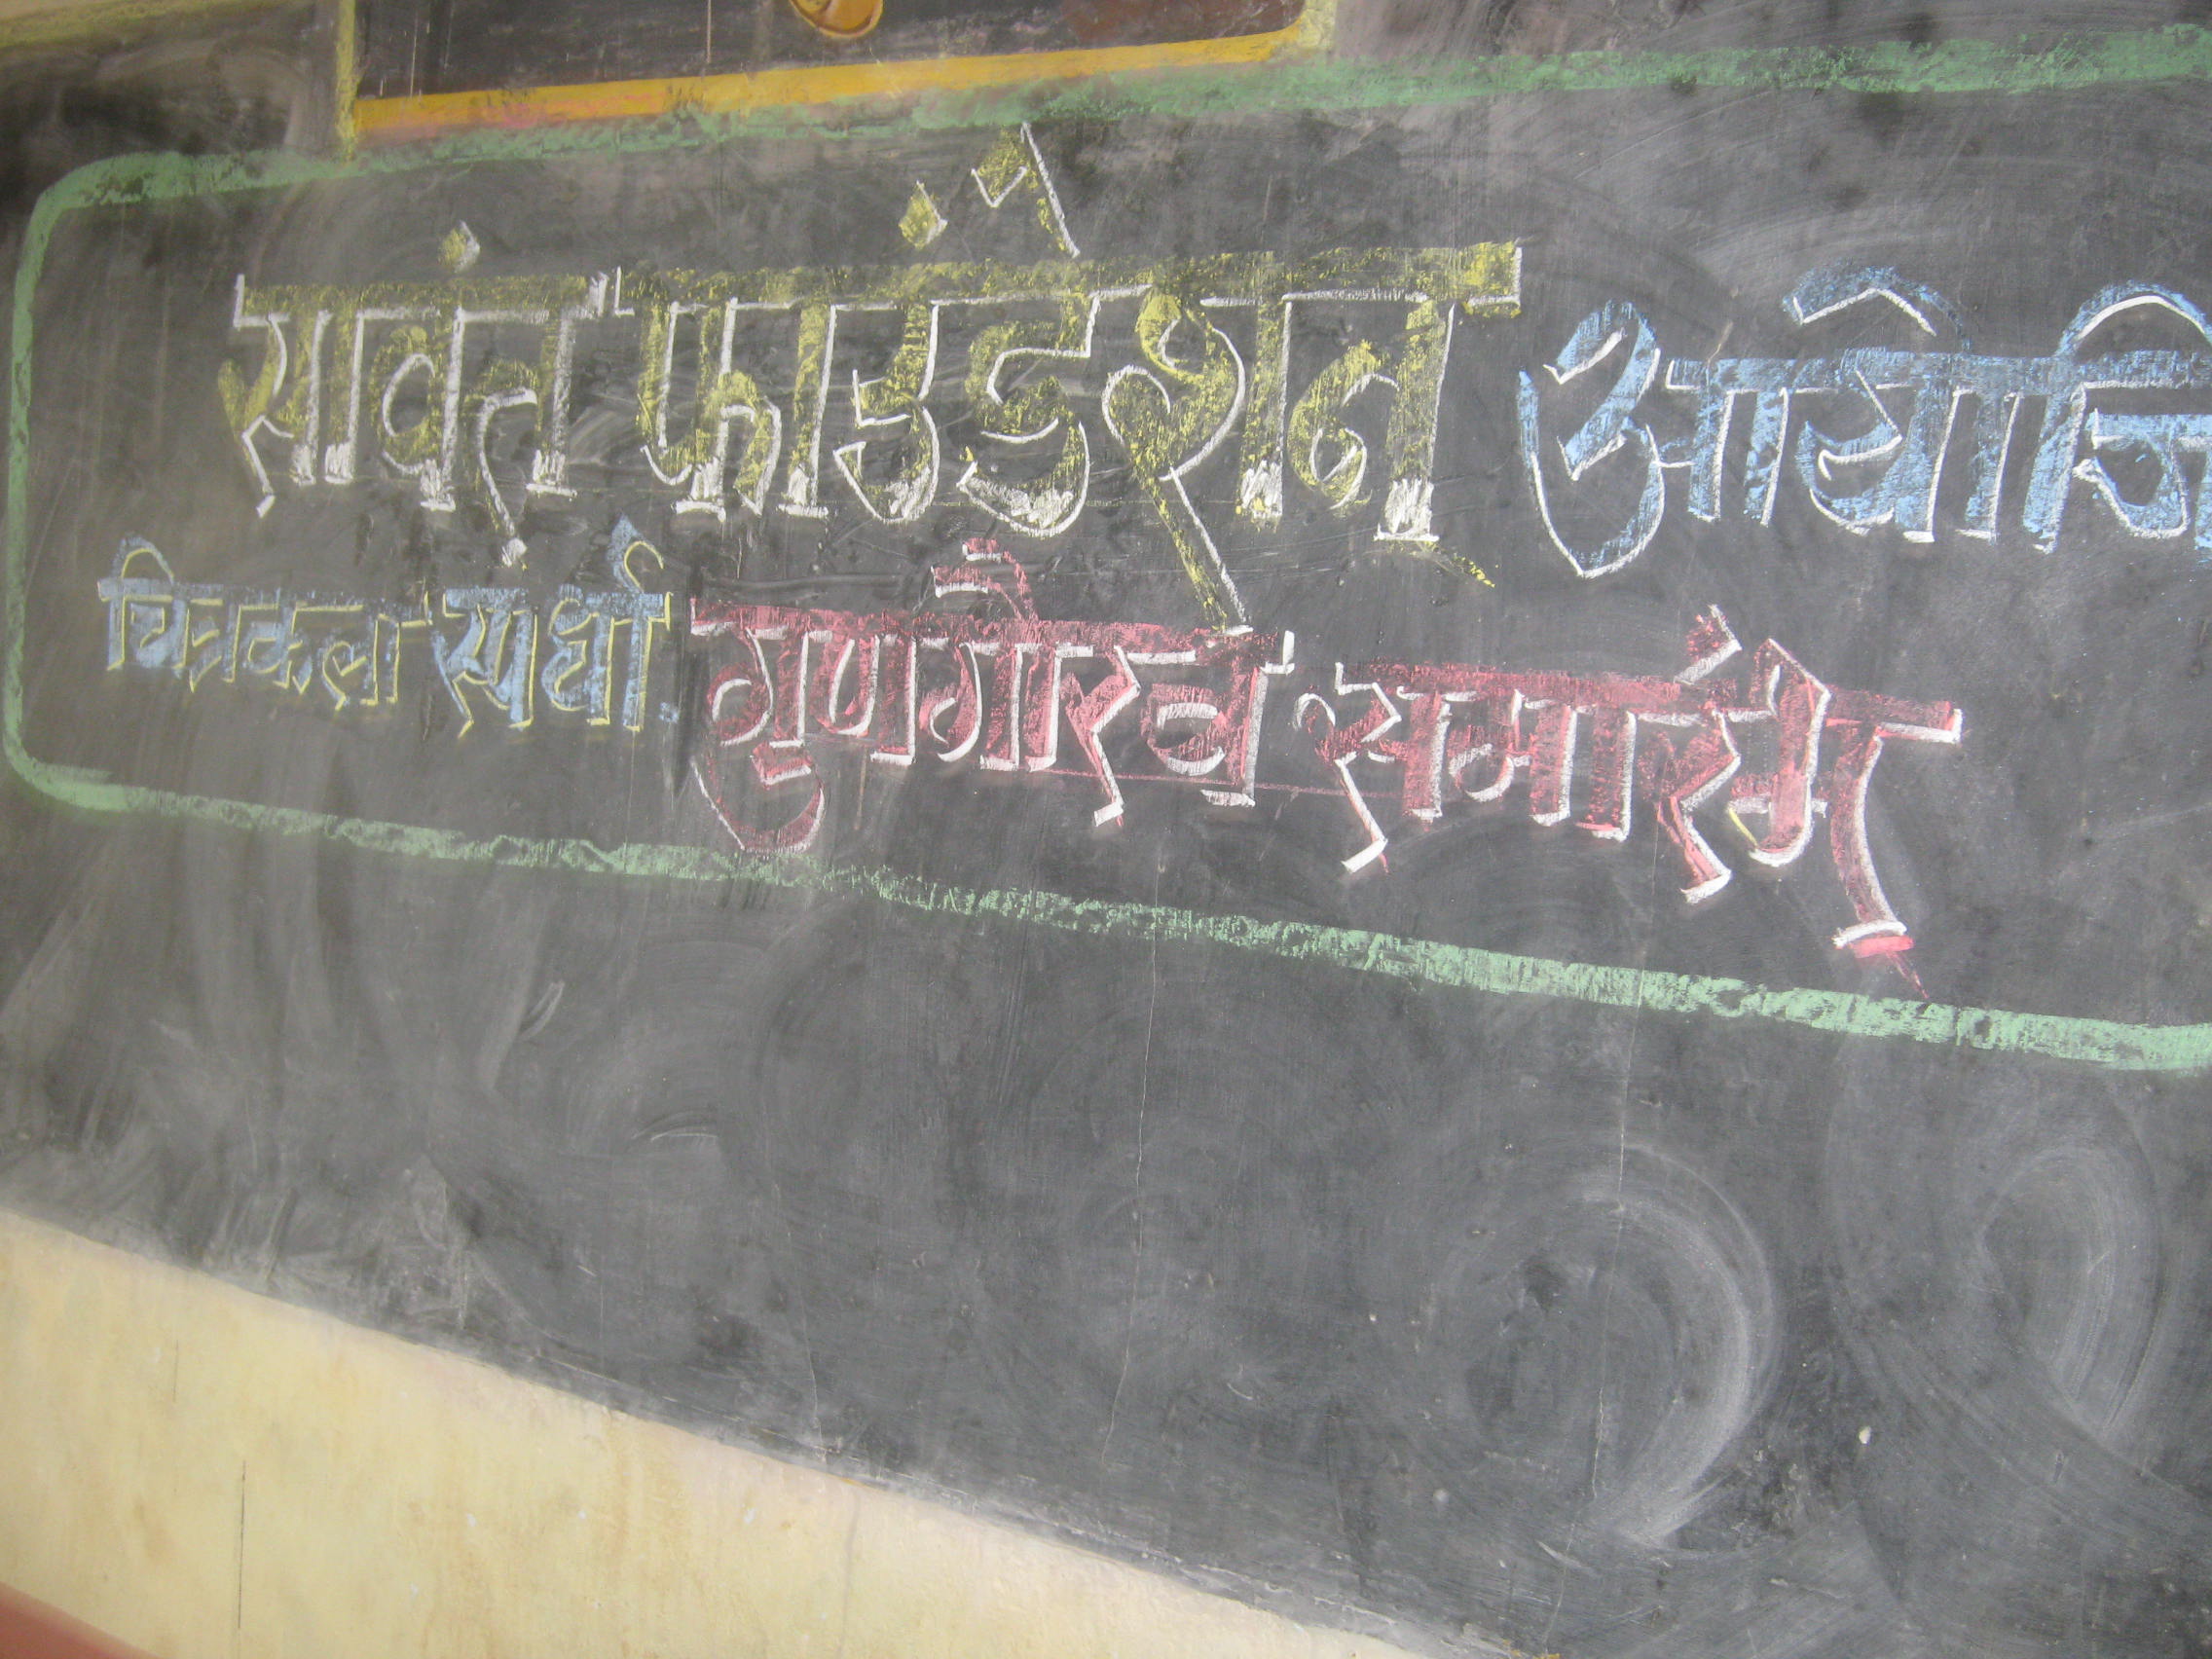 सावंत फाउंडेशन आयोजि
चित्रकला स्पर्धा. गुणगौरव समारंभ